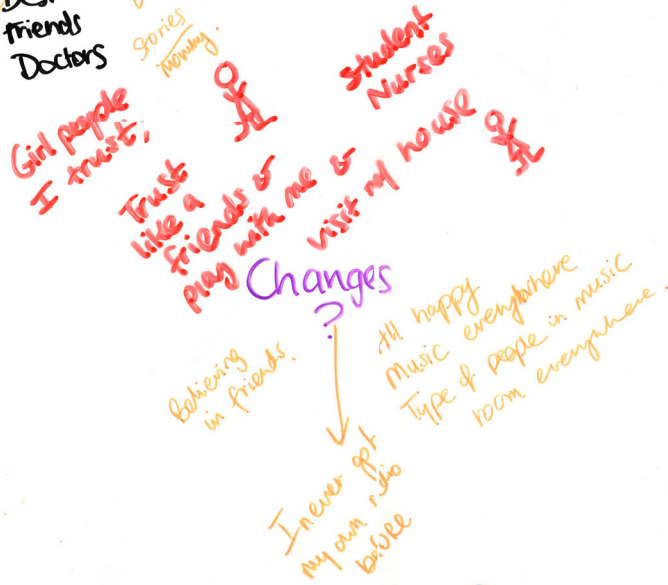 Friends
Doctors
Stories
Mommy.
Girl people
I trust,
Student
Nurses
Trust
like a
friends &
play with me &
visit my house
Changes
?
Believing
in friends.
All happy
Music everywhere
Type of people in music
room everywhere.
I never got
my own radio
before